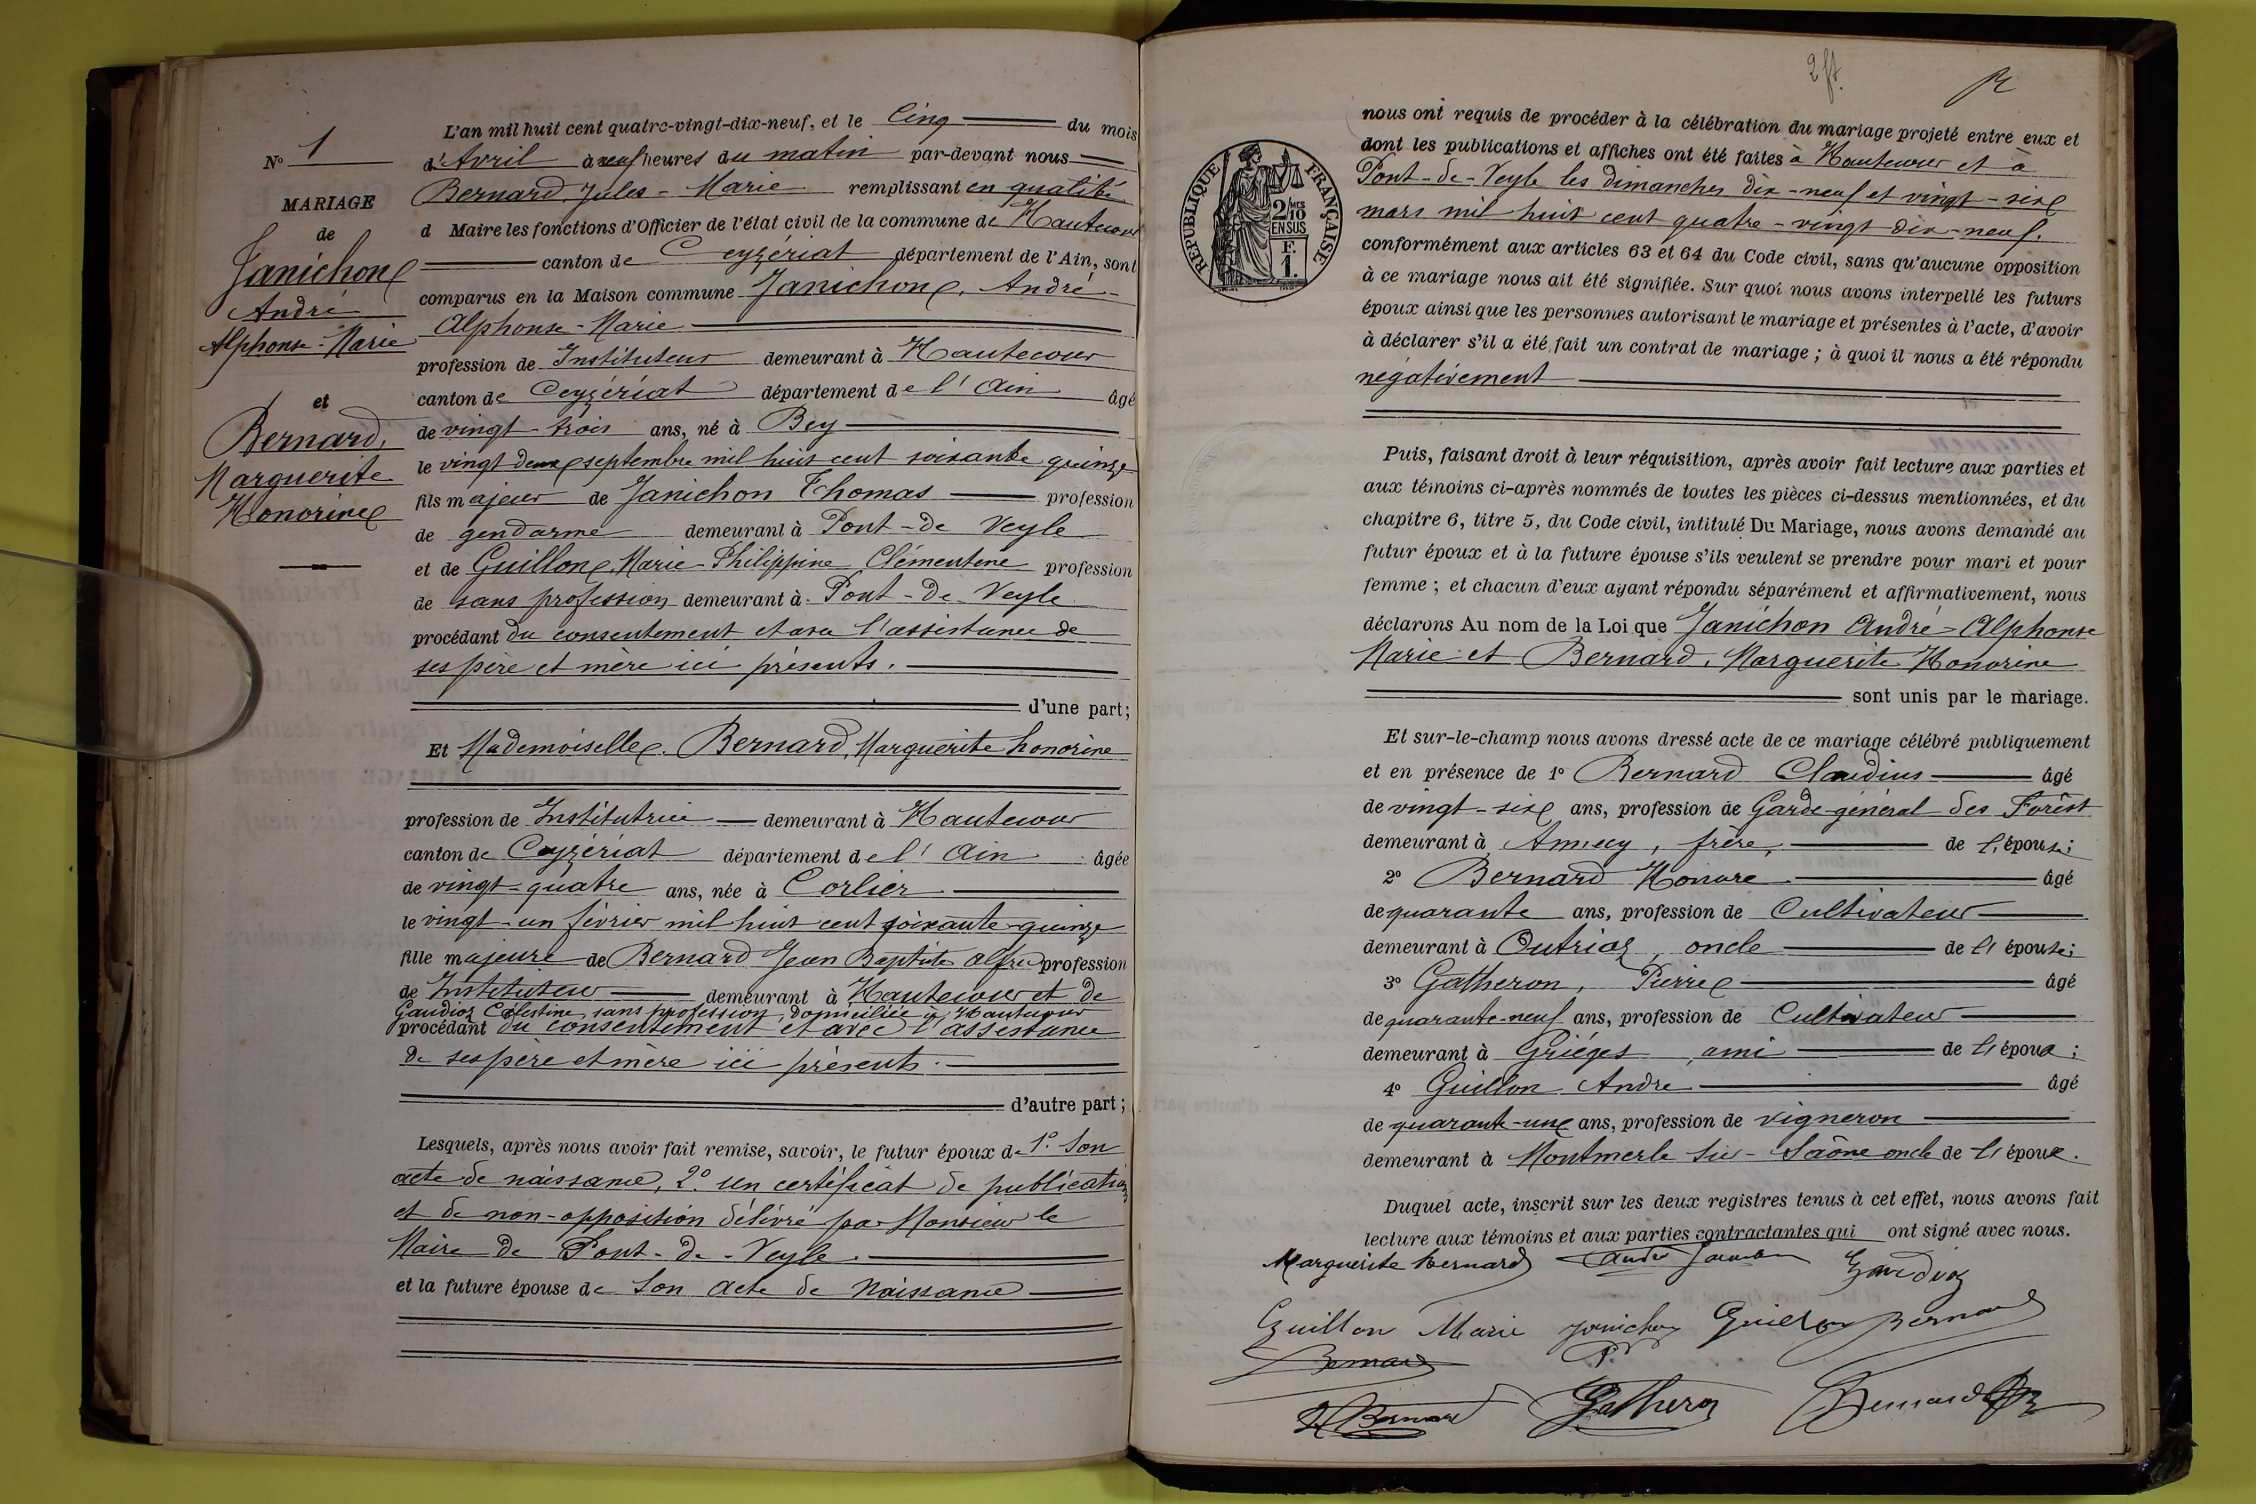 N° 1
MARIAGE
de
Janichon
André
Alphonse-Marie
et
Bernard,
Marguerite
Honorine
L'an mil huit cent quatre-vingt-dix-neuf, et le Cinq du mois
d'Avril à neuf heures du matin par-devant nous
Bernard, Jules-Marie remplissant en qualité
d Maire les fonctions d'Officier de l'état civil de la commune de Hautecour
canton de Ceyzériat département de l'Ain, sont
comparus en la Maison commune Janichon, André-
Alphonse-Marie
profession de Instituteur demeurant à Hautecour
canton de Ceyzériat département de l'Ain âgé
de vingt-trois ans, né à Bey
le vingt deux septembre mil huit cent soixante quinze
fils majeur de Janichon Thomas profession
de gendarme demeurant à Pont-de Veyle
et de Guillon, Marie-Philippine Clémentine profession
de sans profession demeurant à Pont-de-Veyle
procédant du consentement et avec l'assistance de
ses père et mère ici présents.
d'une part;
Et Mademoiselle. Bernard, Marguerite honorine
profession de Institutrice demeurant à Hautecour
canton de Ceyzériat département de l'Ain âgée
de vingt-quatre ans, née à Corlier
le vingt-un février mil huit cent soixante-quinze
fille majeure de Bernard Jean Baptiste Alfred profession
de Instituteur demeurant à Hautecour et de
Gaudioz Célestine, sans profession, domiciliée à Hautecour
procédant du consentement et avec l'assistance
de ses père et mère ici présents.
d'autre part;
Lesquels, après nous avoir fait remise, savoir, le futur époux de 1° Son
acte de naissance, 2° un certificat de publication
et de non-opposition délivré par Monsieur le
Maire de Pont-de-Veyle.
et la future épouse de Son acte de Naissance
2 ft.
RÉPUBLIQUE FRANÇAISE
2/10 MES
EN SUS
F.
1.
nous ont requis de procéder à la célébration du mariage projeté entre eux et
dont les publications et affiches ont été faites à Hautecour et à
Pont-de-Veyle les dimanches dix-neuf et vingt-six
mars mil huit cent quatre-vingt-dix-neuf.
conformément aux articles 63 et 64 du Code civil, sans qu'aucune opposition
à ce mariage nous ait été signifiée. Sur quoi nous avons interpellé les futurs
époux ainsi que les personnes autorisant le mariage et présentes à l'acte, d'avoir
à déclarer s'il a été fait un contrat de mariage; à quoi il nous a été répondu
négativement
Puis, faisant droit à leur réquisition, après avoir fait lecture aux parties et
aux témoins ci-après nommés de toutes les pièces ci-dessus mentionnées, et du
chapitre 6, titre 5, du Code civil, intitulé Du Mariage, nous avons demandé au
futur époux et à la future épouse s'ils veulent se prendre pour mari et pour
femme; et chacun d'eux ayant répondu séparément et affirmativement, nous
déclarons Au nom de la Loi que Janichon André-Alphonse
Marie et Bernard, Marguerite Honorine
sont unis par le mariage.
Et sur-le-champ nous avons dressé acte de ce mariage célébré publiquement
et en présence de 1° Bernard Claudius âgé
de vingt-six ans, profession de Garde-général des Forêst
demeurant à Annecy, frère, de l'épouse;
2° Bernard Honoré âgé
de quarante ans, profession de Cultivateur
demeurant à Outriaz, oncle de l'épouse;
3° Gatheron, Pierre âgé
de quarante-neuf ans, profession de Cultivateur
demeurant à Griéges ami de l'époux;
4° Guillon André âgé
de quarante-un ans, profession de vigneron
demeurant à Montmerle Sur-Saône oncle de l'époux.
Duquel acte, inscrit sur les deux registres tenus à cet effet, nous avons fait
lecture aux témoins et aux parties contractantes qui ont signé avec nous.
Marguerite Bernard André Janichon Gaudioz
Guillon Marie Janichon Guillon Bernard
Bernard
Bernard Gatheron Bernard